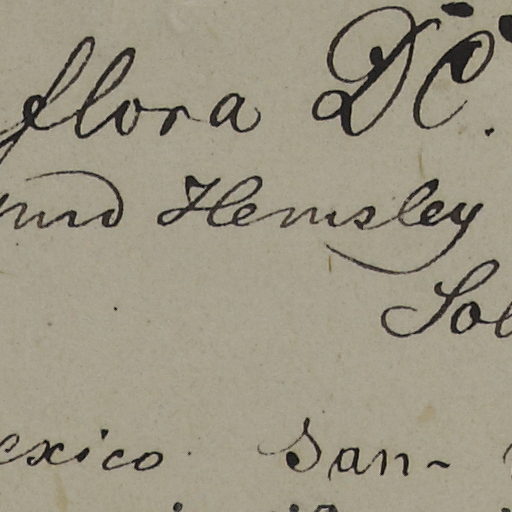 flora DC.
Hemsley
Sol
exico San-